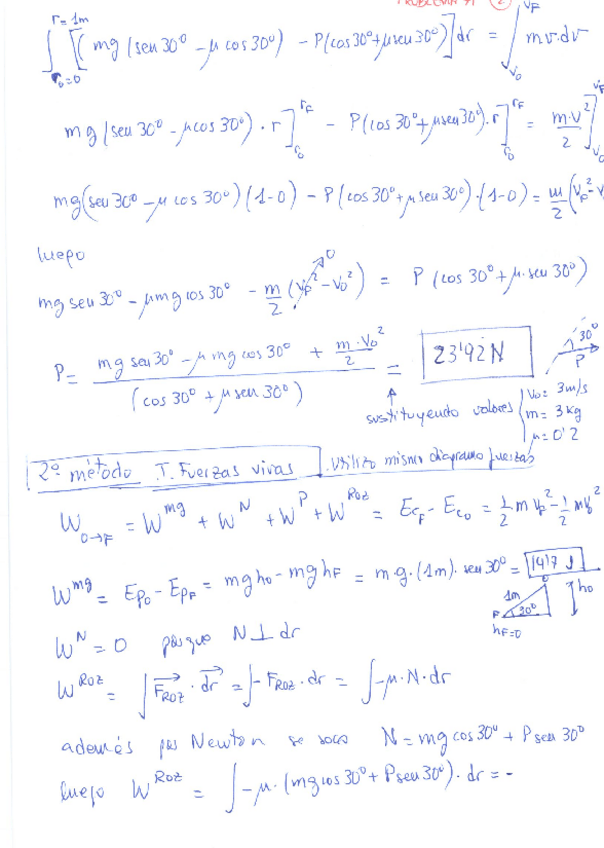 PROBLEMA 71 2
∫_{r₀=0}^{r=1m} [( mg (sen 30º - μ cos 30º) - P(cos 30º + μ sen 30º)] dr = ∫_{v₀}^{v_F} m v. dv
mg (sen 30º - μ cos 30º) · r ]_{r₀}^{r_F} - P(cos 30º + μ sen 30º). r ]_{r₀}^{r_F} = m·v²/2 ]_{v₀}^{v_F}
mg(sen 30º - μ cos 30º) (1-0) - P (cos 30º + μ sen 30º)·(1-0) = m/2 (v_F² - v
luego
mg sen 30º - μmg cos 30º - m/2 (v_F² - v₀²) = P (cos 30º + μ. sen 30º)
0
P = (mg sen 30º - μ mg cos 30º + m·v₀²/2) / (cos 30º + μ sen 30º) = 23'92 N
30º
P
sustituyendo valores
v₀ = 3 m/s
m = 3 kg
μ = 0'2
2º método T. Fuerzas vivas . Utilizo mismo diagrama fuerzas
W_{0→F} = W^{mg} + W^N + W^P + W^{Roz} = Ec_F - Ec_0 = ½ m v_F² - ½ m v₀²
W^{mg} = Ep_0 - Ep_F = mgh₀ - mgh_F = m·g·(1m). sen 30º = 14'7 J
1m
h₀
F 30º
h_F=0
W^N = 0 porque N ⊥ dr
W^{Roz} = ∫ F_{ROZ} · dr = ∫ - F_{ROZ} · dr = ∫ -μ·N·dr
además por Newton se saca N = mg cos 30º + P sen 30º
luego W^{Roz} = ∫ -μ· (mg cos 30º + P sen 30º)· dr = -